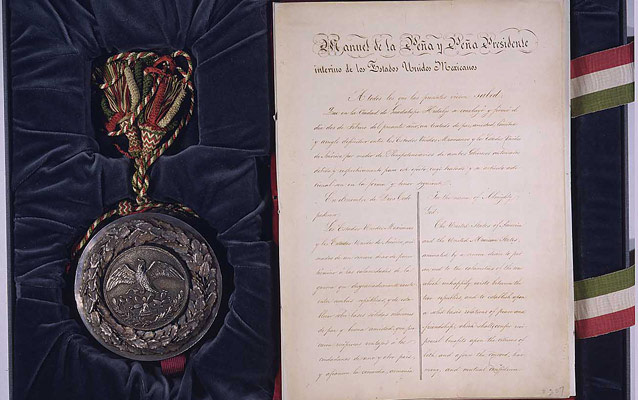 Manuel de la Peña y Peña Presidente
interino de los Estados Unidos Mexicanos
A todos los que las presentes vieren sabed:
Que en la Ciudad de Guadalupe Hidalgo se concluyó y firmó el
dia dos de Febrero del presente año, un tratado de paz, amistad, límites
y arreglo definitivo entre los Estados Unidos Mexicanos y los Estados Unidos
de America por medio de Plenipotenciarios de ambos Gobiernos autorizados
debida y respectivamente para este efecto, cuyo tratado y su artículo adi-
cional son en la forma y tenor siguiente.
En el nombre de Dios Todo-
poderoso:
Los Estados Unidos Mexicanos
y los Estados Unidos de America, ani-
mados de un sincero deseo de poner
término a las calamidades de la
guerra que desgraciadamente existe
entre ambas repúblicas, y de esta-
blecer sobre bases sólidas relaciones
de paz y buena amistad, que pro-
curen recíprocas ventajas a los
ciudadanos de uno y otro país,
y afiancen la concordia, armonía
In the name of Almighty
God:
The United States of America
and the United Mexican States,
animated by a sincere desire to put
an end to the calamities of the
war which unhappily exists between the
two republics, and to establish
upon a solid basis relations of peace and
friendship, which shall confer re-
ciprocal benefits upon the citizens of
both, and assure the concord, har-
mony, and mutual confidence